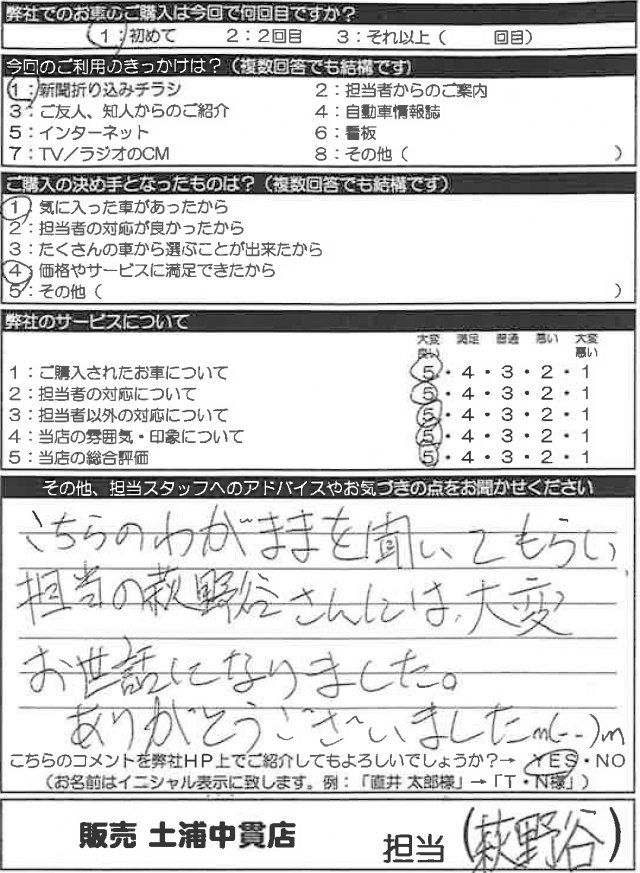 弊社でのお車のご購入は今回で何回目ですか?
1:初めて 2:2回目 3:それ以上( 回目)
今回のご利用のきっかけは?(複数回答でも結構です)
1:新聞折り込みチラシ 2:担当者からのご案内
3:ご友人、知人からのご紹介 4:自動車情報誌
5:インターネット 6:看板
7:TV/ラジオのCM 8:その他( )
ご購入の決め手となったものは?(複数回答でも結構です)
1:気に入った車があったから
2:担当者の対応が良かったから
3:たくさんの車から選ぶことが出来たから
4:価格やサービスに満足できたから
5:その他( )
弊社のサービスについて
大変良い 満足 普通 悪い 大変悪い
1:ご購入されたお車について 5・4・3・2・1
2:担当者の対応について 5・4・3・2・1
3:担当者以外の対応について 5・4・3・2・1
4:当店の雰囲気・印象について 5・4・3・2・1
5:当店の総合評価 5・4・3・2・1
その他、担当スタッフへのアドバイスやお気づきの点をお聞かせください
こちらのわがままを聞いてもらい、
担当の萩野谷さんには、大変
お世話になりました。
ありがとうございましたm(--)m
こちらのコメントを弊社HP上でご紹介してもよろしいでしょうか?→ YES・NO
(お名前はイニシャル表示に致します。例:「直井 太郎様」→「T・N様」)
販売 土浦中貫店 担当(萩野谷)